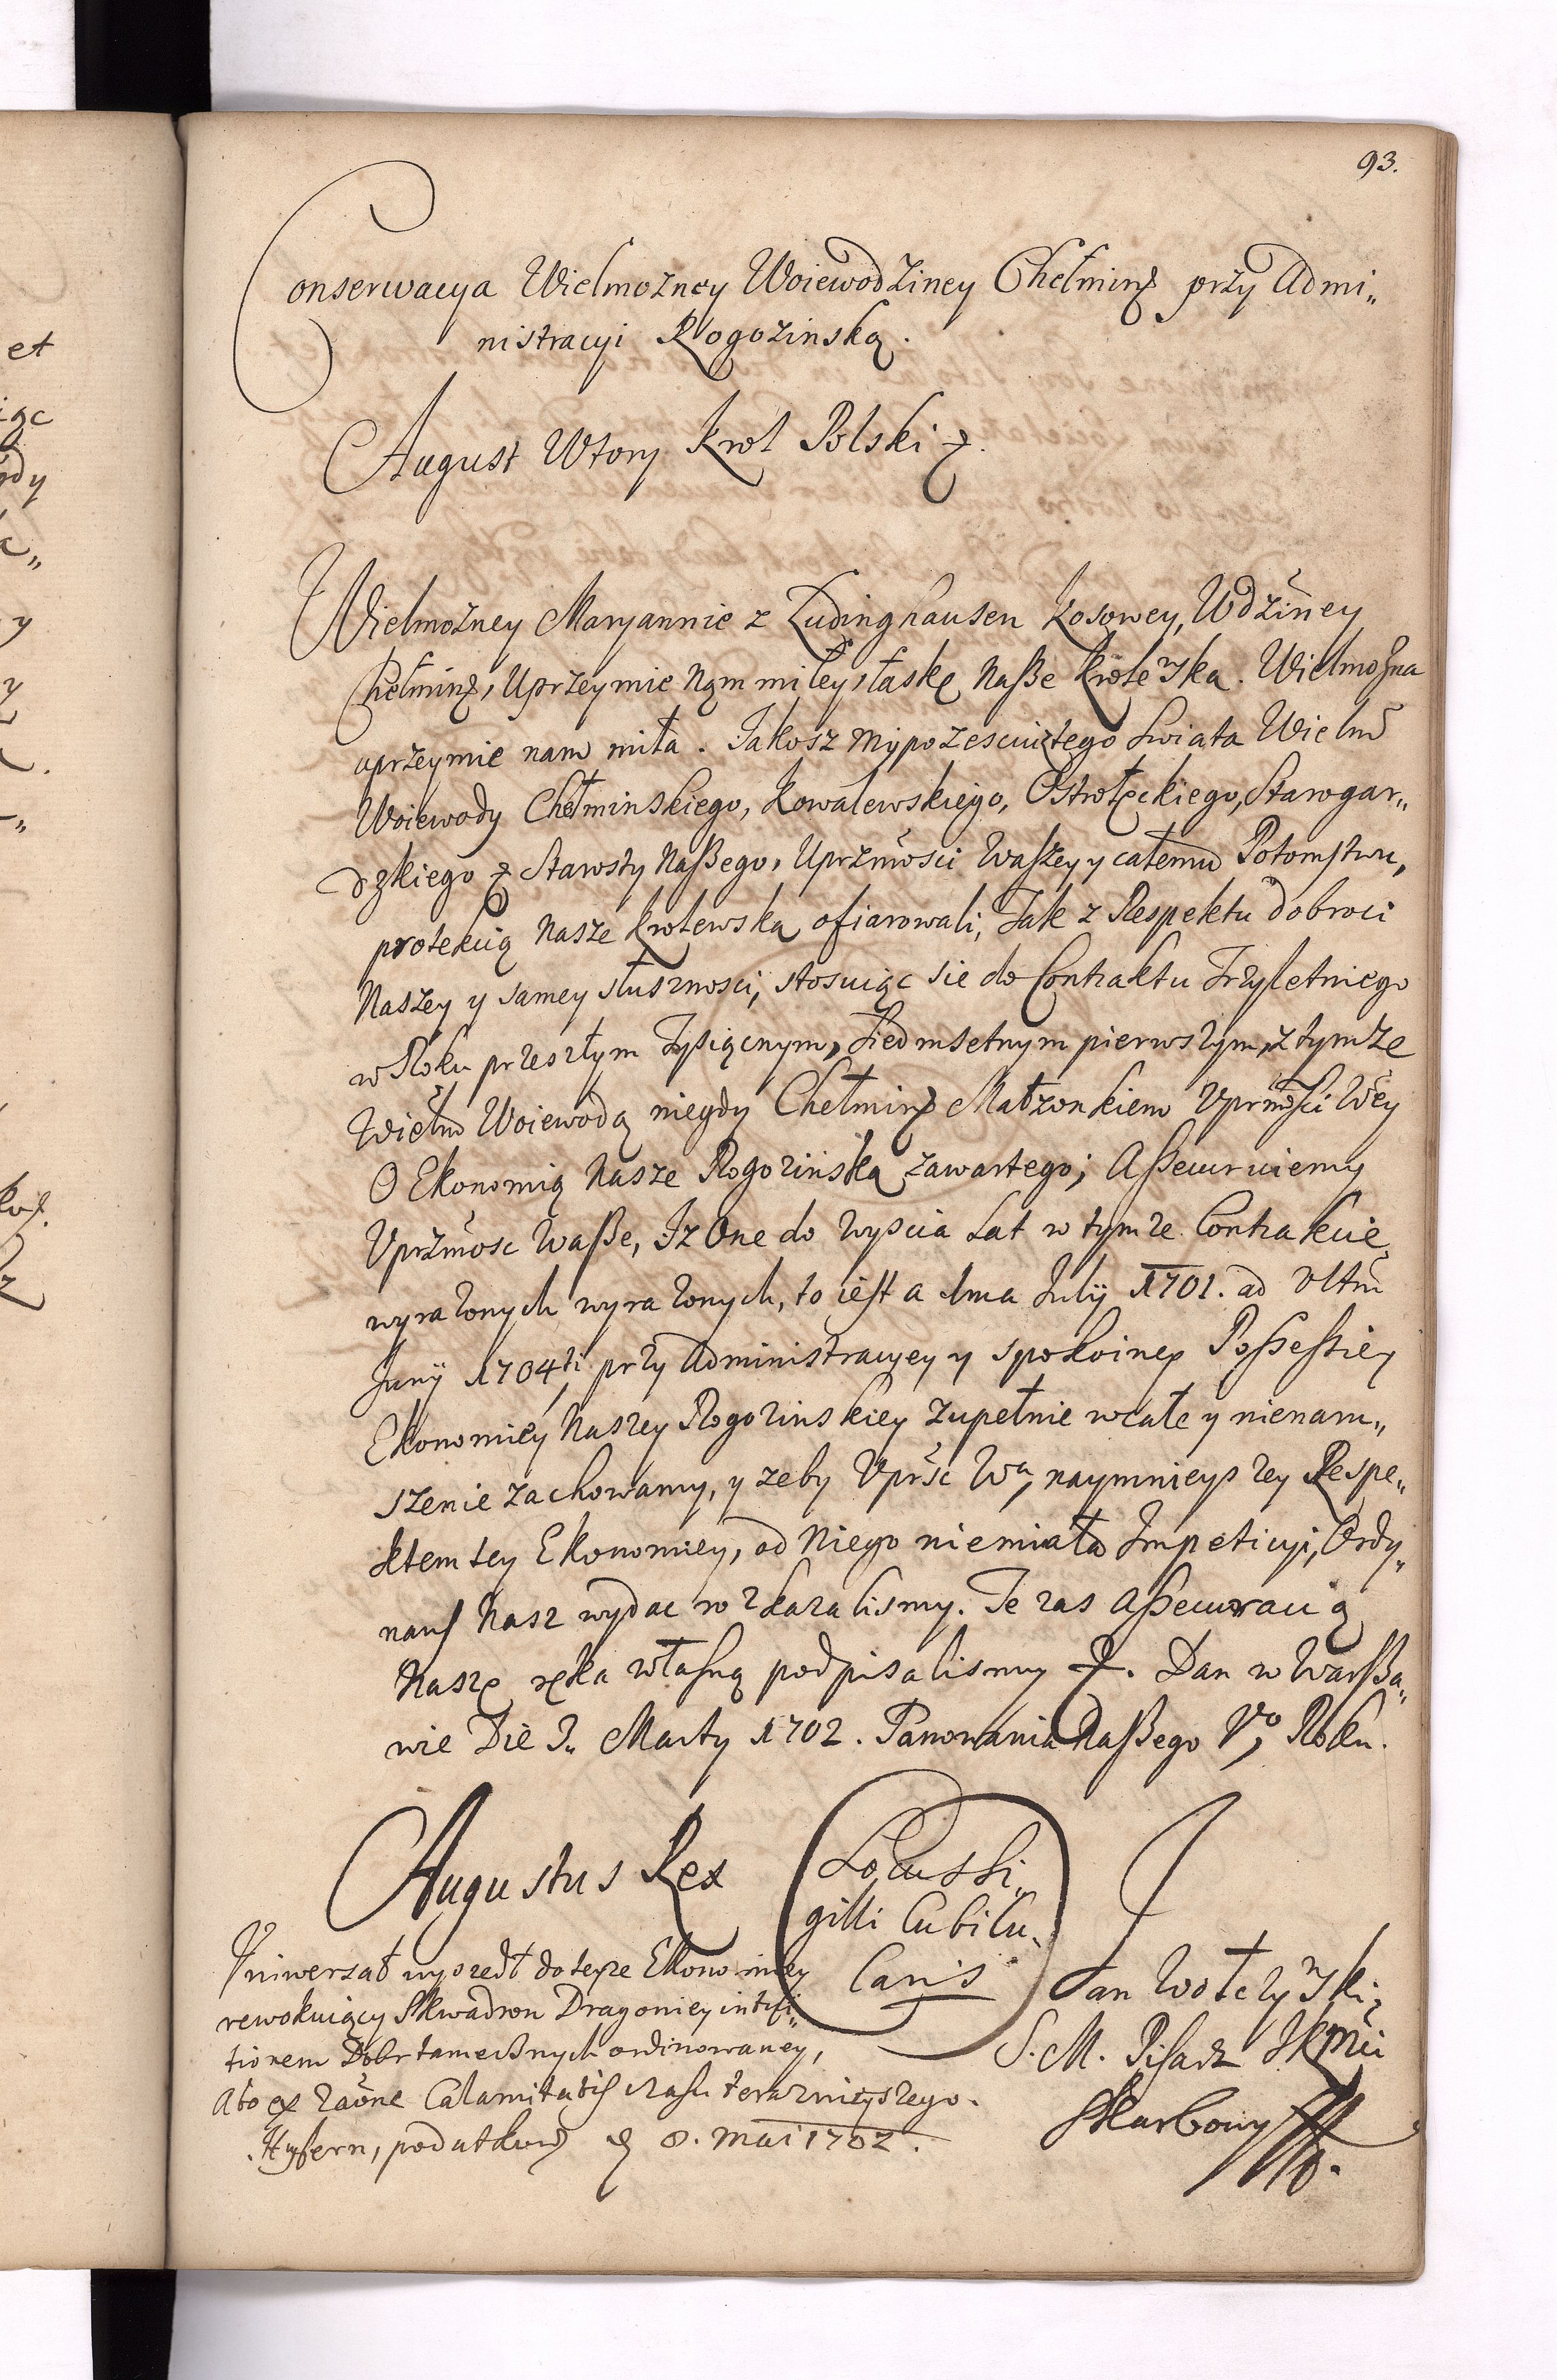 93.
Conserwacya Wielmozney Woiewodziney Chełminz przy Admi„
nistracyi Rogozinską.
August Wtory Krol Polski z.
Wielmozney Maryannie z Ludinghausen Kosowey, Wdziney
Chełminz, Uprzeymie Nąm miley, łaskę Naße Krolewska. Wielmożna
uprzeymie nam miła. Jakosz my po zesciu z tego Swiata Wielm
Woiewody Chełminskiego, Kowalewskiego, Ostrołęckiego, Starogar„
dzkiego z Starosty Naßego, Uprzmosci Waszey y całemu Potomstwu,
protekcią Nasze Krolewską ofiarowali, Tak z Respektu dobroci
Naszey y samey słusznosci, stosuiąc sie do Contraktu Trzyletniego
w Roku przeszłym Tysiącnym, Siedmsetnym pierwszym, z tymze
Wielm Woiewodą niegdy Chełminz Małzonkiem Uprmości Wey
O Ekonomią Nasze Rogozińską zawartego; Aßecuruiemy
Uprzmosc Waße, Iz One do wyscia Lat w tymze Contrakcie
wyrazonych wyrazonych, to iest a 1ma July 1701. ad Ultm
Juny 1704ti przy Administracyey y spokoiney Poßeßiey
Ekonomiey Naszey Rogozinskiey zupełnie wcałe y nienaru„
szenie zachowamy, y zeby Uprsc Wa, naymnieyszey Respe„
ktem tey Ekonomiey, od Niego niemiała Impeticyi, Ordy„
nans Nasz wydac wskazalismy. Te zas Aßecuracią
Naszę ręką własną podpisalismy. Dan w Warßa„
wie Die 2. Marty 1702. Panowania Naßego Vo Roku.
Augustus Rex
Locus Si„
gilli Cubicu„
laris
Uniwersał wyszedł do teyze Ekonomiey
rewokuiący Skwadron Dragoniey
tionem Dobr tamecznych ordinowaney,
a to ex Calamitatis czasu teraznieyszego.
Hybern, podatkow d 8. Mai 1702.
Jan Wołczynski
S. M. Pisarz JKMci
Skarbowy